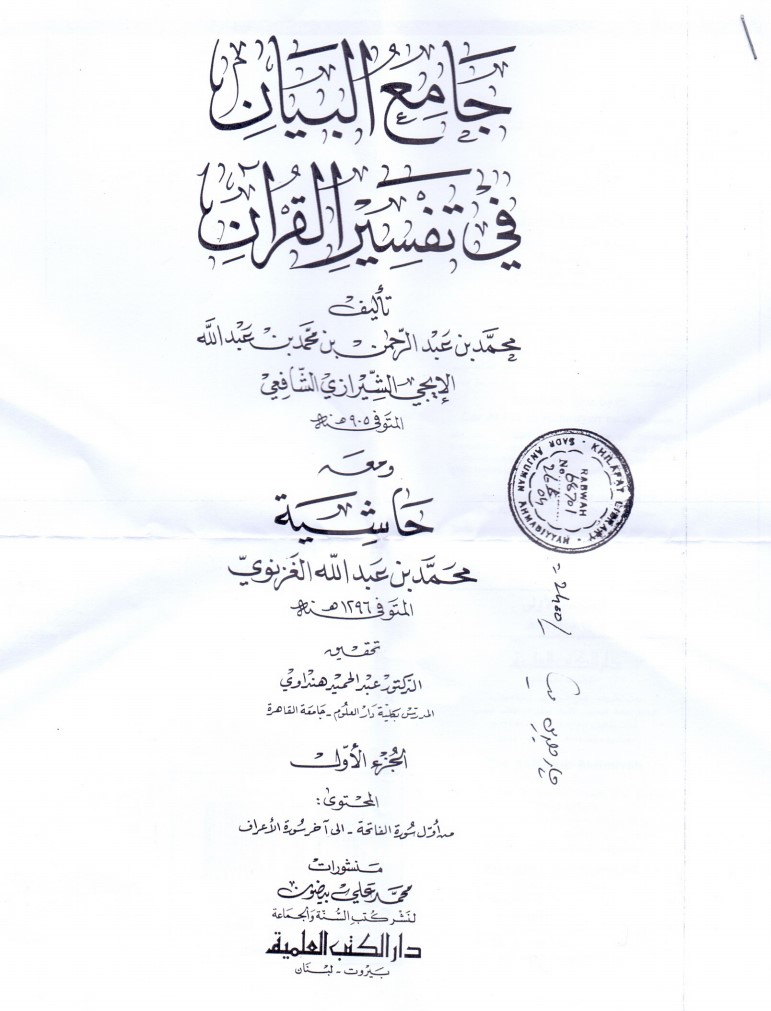 جَامِعُ البَيَانِ
فِي تَفْسِيْرِ القُرْآنِ
تأليف
محمّد بن عبد الرّحمن بن محمّد بن عبد الله
الإيجي الشّيرازي الشّافعي
المتوفى ٩٠٥ هـ سنة
ومعه
حَاشِيَة
محمَّد بن عبد الله الغَزنويّ
المتوفى ١٢٩٦ هـ سنة
تحقيق
الدكتور عبد الحميد هنداوي
المدرّس بكلية دَار العلُوم - جَامعَة القاهرة
الجُزء الأوّل
المحتوى:
من أوّل سُورة الفاتحة - الى آخر سُورة الأعراف
مَنشورات
محمّد علي بيضون
لنَشر كتبِ السُّنّة وَالجمَاعة
دار الكتب العلمية
بَيروت - لبنَان
KHILAFAT LIBRARY · SADR ANJUMAN AHMADIYYAH ·
RABWAH
No. 66701
= 2400/